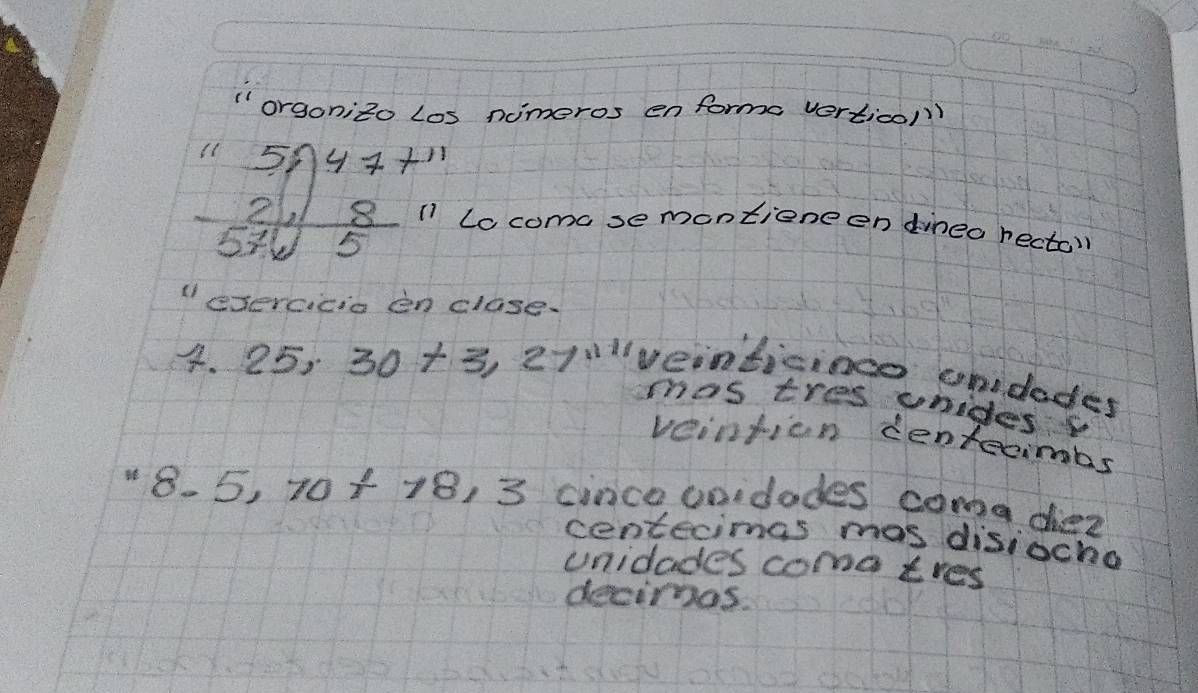 "orgonizo Los números en forma vertical"
" 5,47 +"
2, 8 " La coma se mantiene en linea recta"
5
"esercicio en clase.
7. 25, 30 + 3, 21" "veinticinco unidades
mas tres unides y
veintiun centecimas
"8. 5, 10 + 18, 3 cinco unidades coma diez
centecimas mas disiocho
unidades coma tres
decimas.